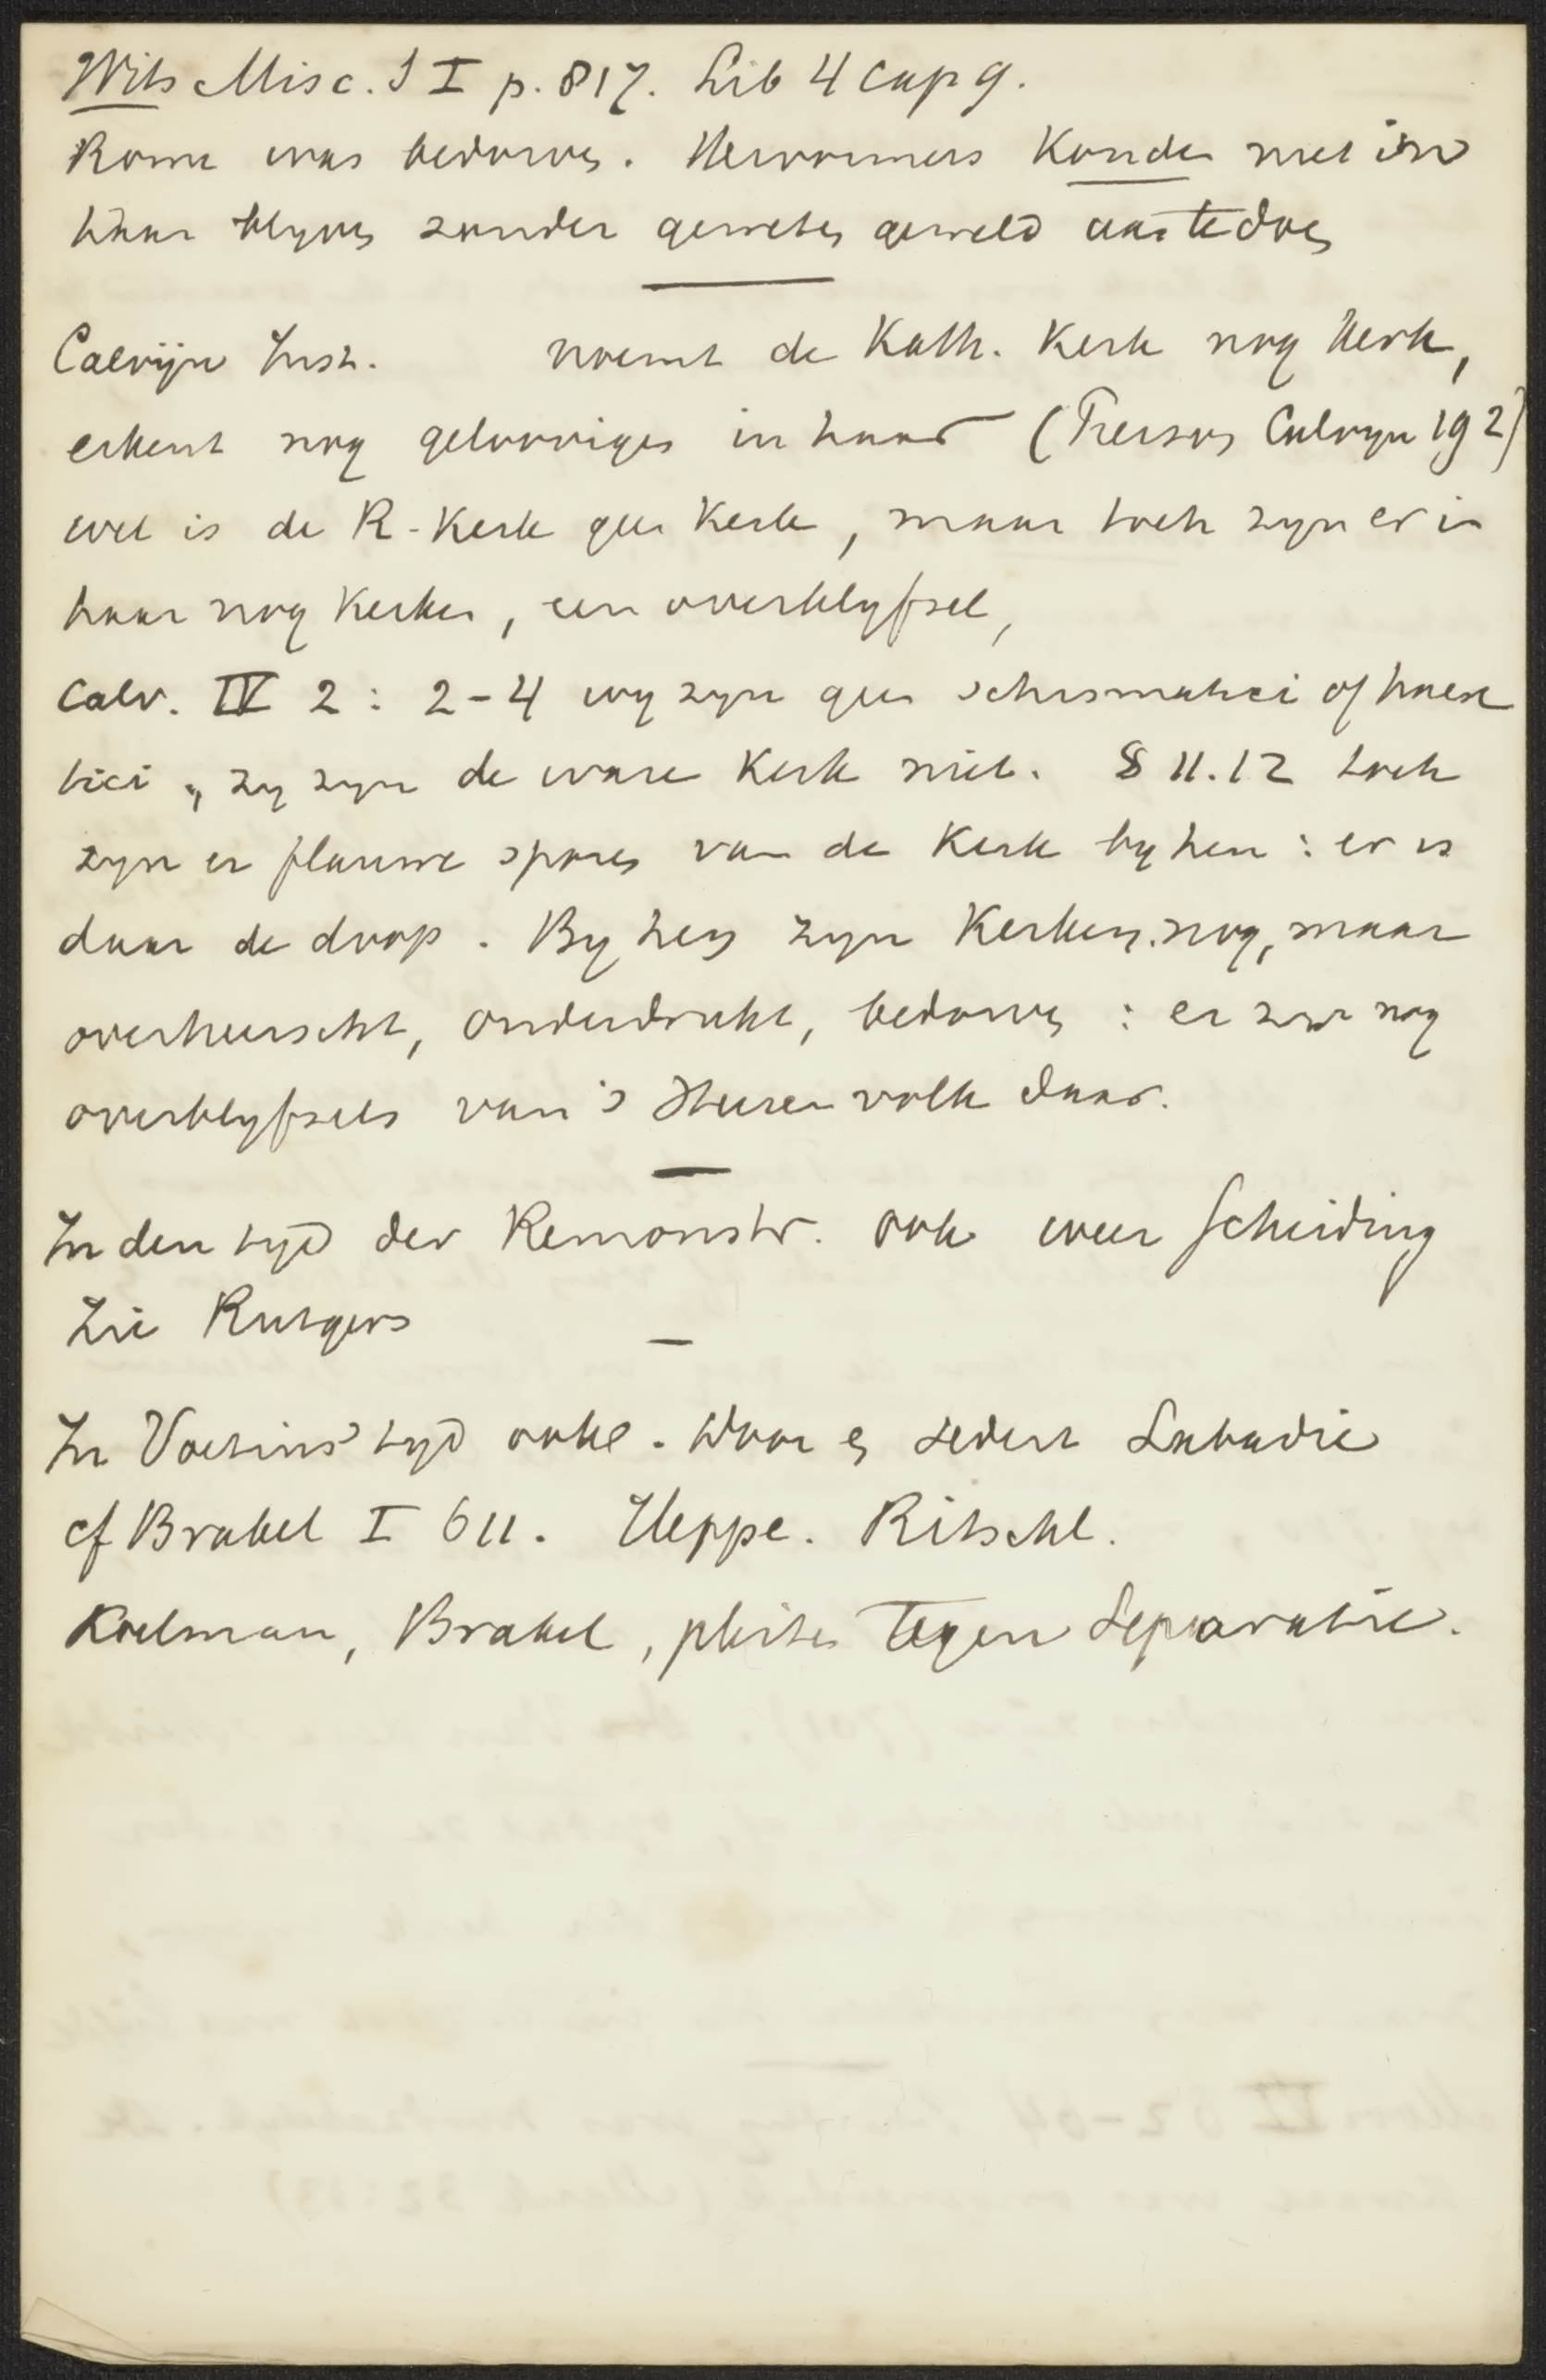 Wits Misc. S I p. 817. Lib 4 cap 9.
Rome was bedorven. Hervormers konden niet in
haar blyven zonder geweten geweld aan te doen
Calvijn Inst. noemt de Kath. Kerk nog Kerk,
erkent nog geloovigen in haar (Piersons Calvyn 192)
wel is de R-Kerk geen Kerk, maar toch zyn er in
haar nog Kerken, een overblyfsel,
Calv. IV 2: 2-4 wy zyn geen schismatici of haere
tici, zy zyn de ware Kerk niet. § 11.12 toch
zyn er flauwe sporen van de Kerk by hen: er is
daar de doop. By hen zyn Kerken nog, maar
overheerscht, onderdrukt, bedorven: er zyn nog
overblyfsels van 's Heeren volk daar.
In den tyd der Remonstr. ook weer scheiding
Zie Rutgers
In Voetius' tyd ook. Door en sedert Labadie
cf Brakel I 611. Heppe. Ritschl.
Koelman, Brakel, pleiten tegen Separatie.